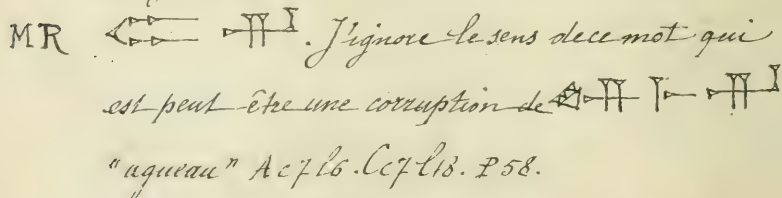 MR . J'ignore le sens de ce mot qui
est peut-être une corruption de
"agneau" A c7 l6 . C c7 l18 . P 58.